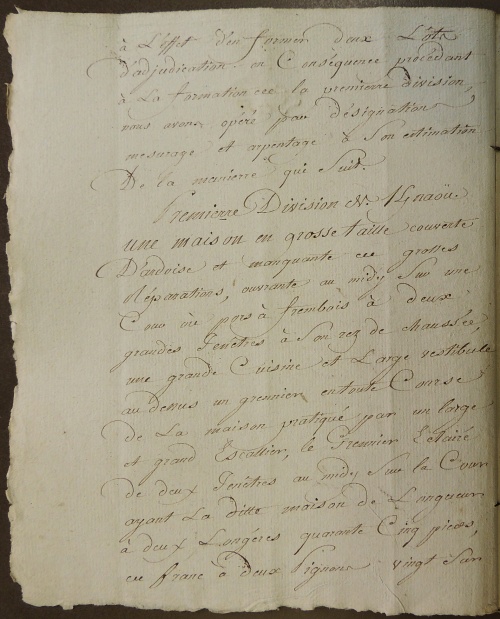 à L'effet d'en former deux Lots
d'adjudication en Conséquence procédant
à La formation de la premierre division,
nous avons opéré par désignation
mesurage et arpentage & Son estimation
De la manierre qui Suit.
Premierre Division
une maison en grosse taille couverte
D'ardoise et manquante de grosses
Réparations, ouvrante au midy Sur une
Cour à deux
grandes fenêtres à Son rez de chaussée,
une grande Cuisine et Large vestibule
au dessus un grennier en toute Course
de La maison pratiqué par un large
et grand Escallier, le Grennier Eclairé
de deux fenêtres au midy Sur la Cour
ayant La ditte maison de Longueur
à deux Longéres quarante Cinq pieds,
de franc à deux Pignons vingt Sur